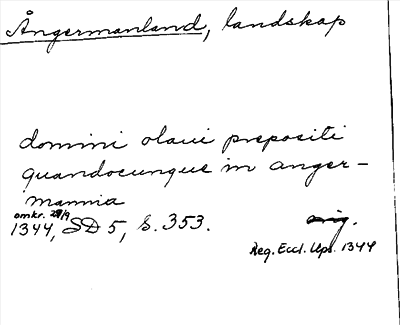 Ångermanland, landskap
domini olaui prepositi
quandocunque in anger-
mannia
omkr. 29/9
1344, SD 5, s. 353.
orig.
Reg. Eccl. Ups. 1344